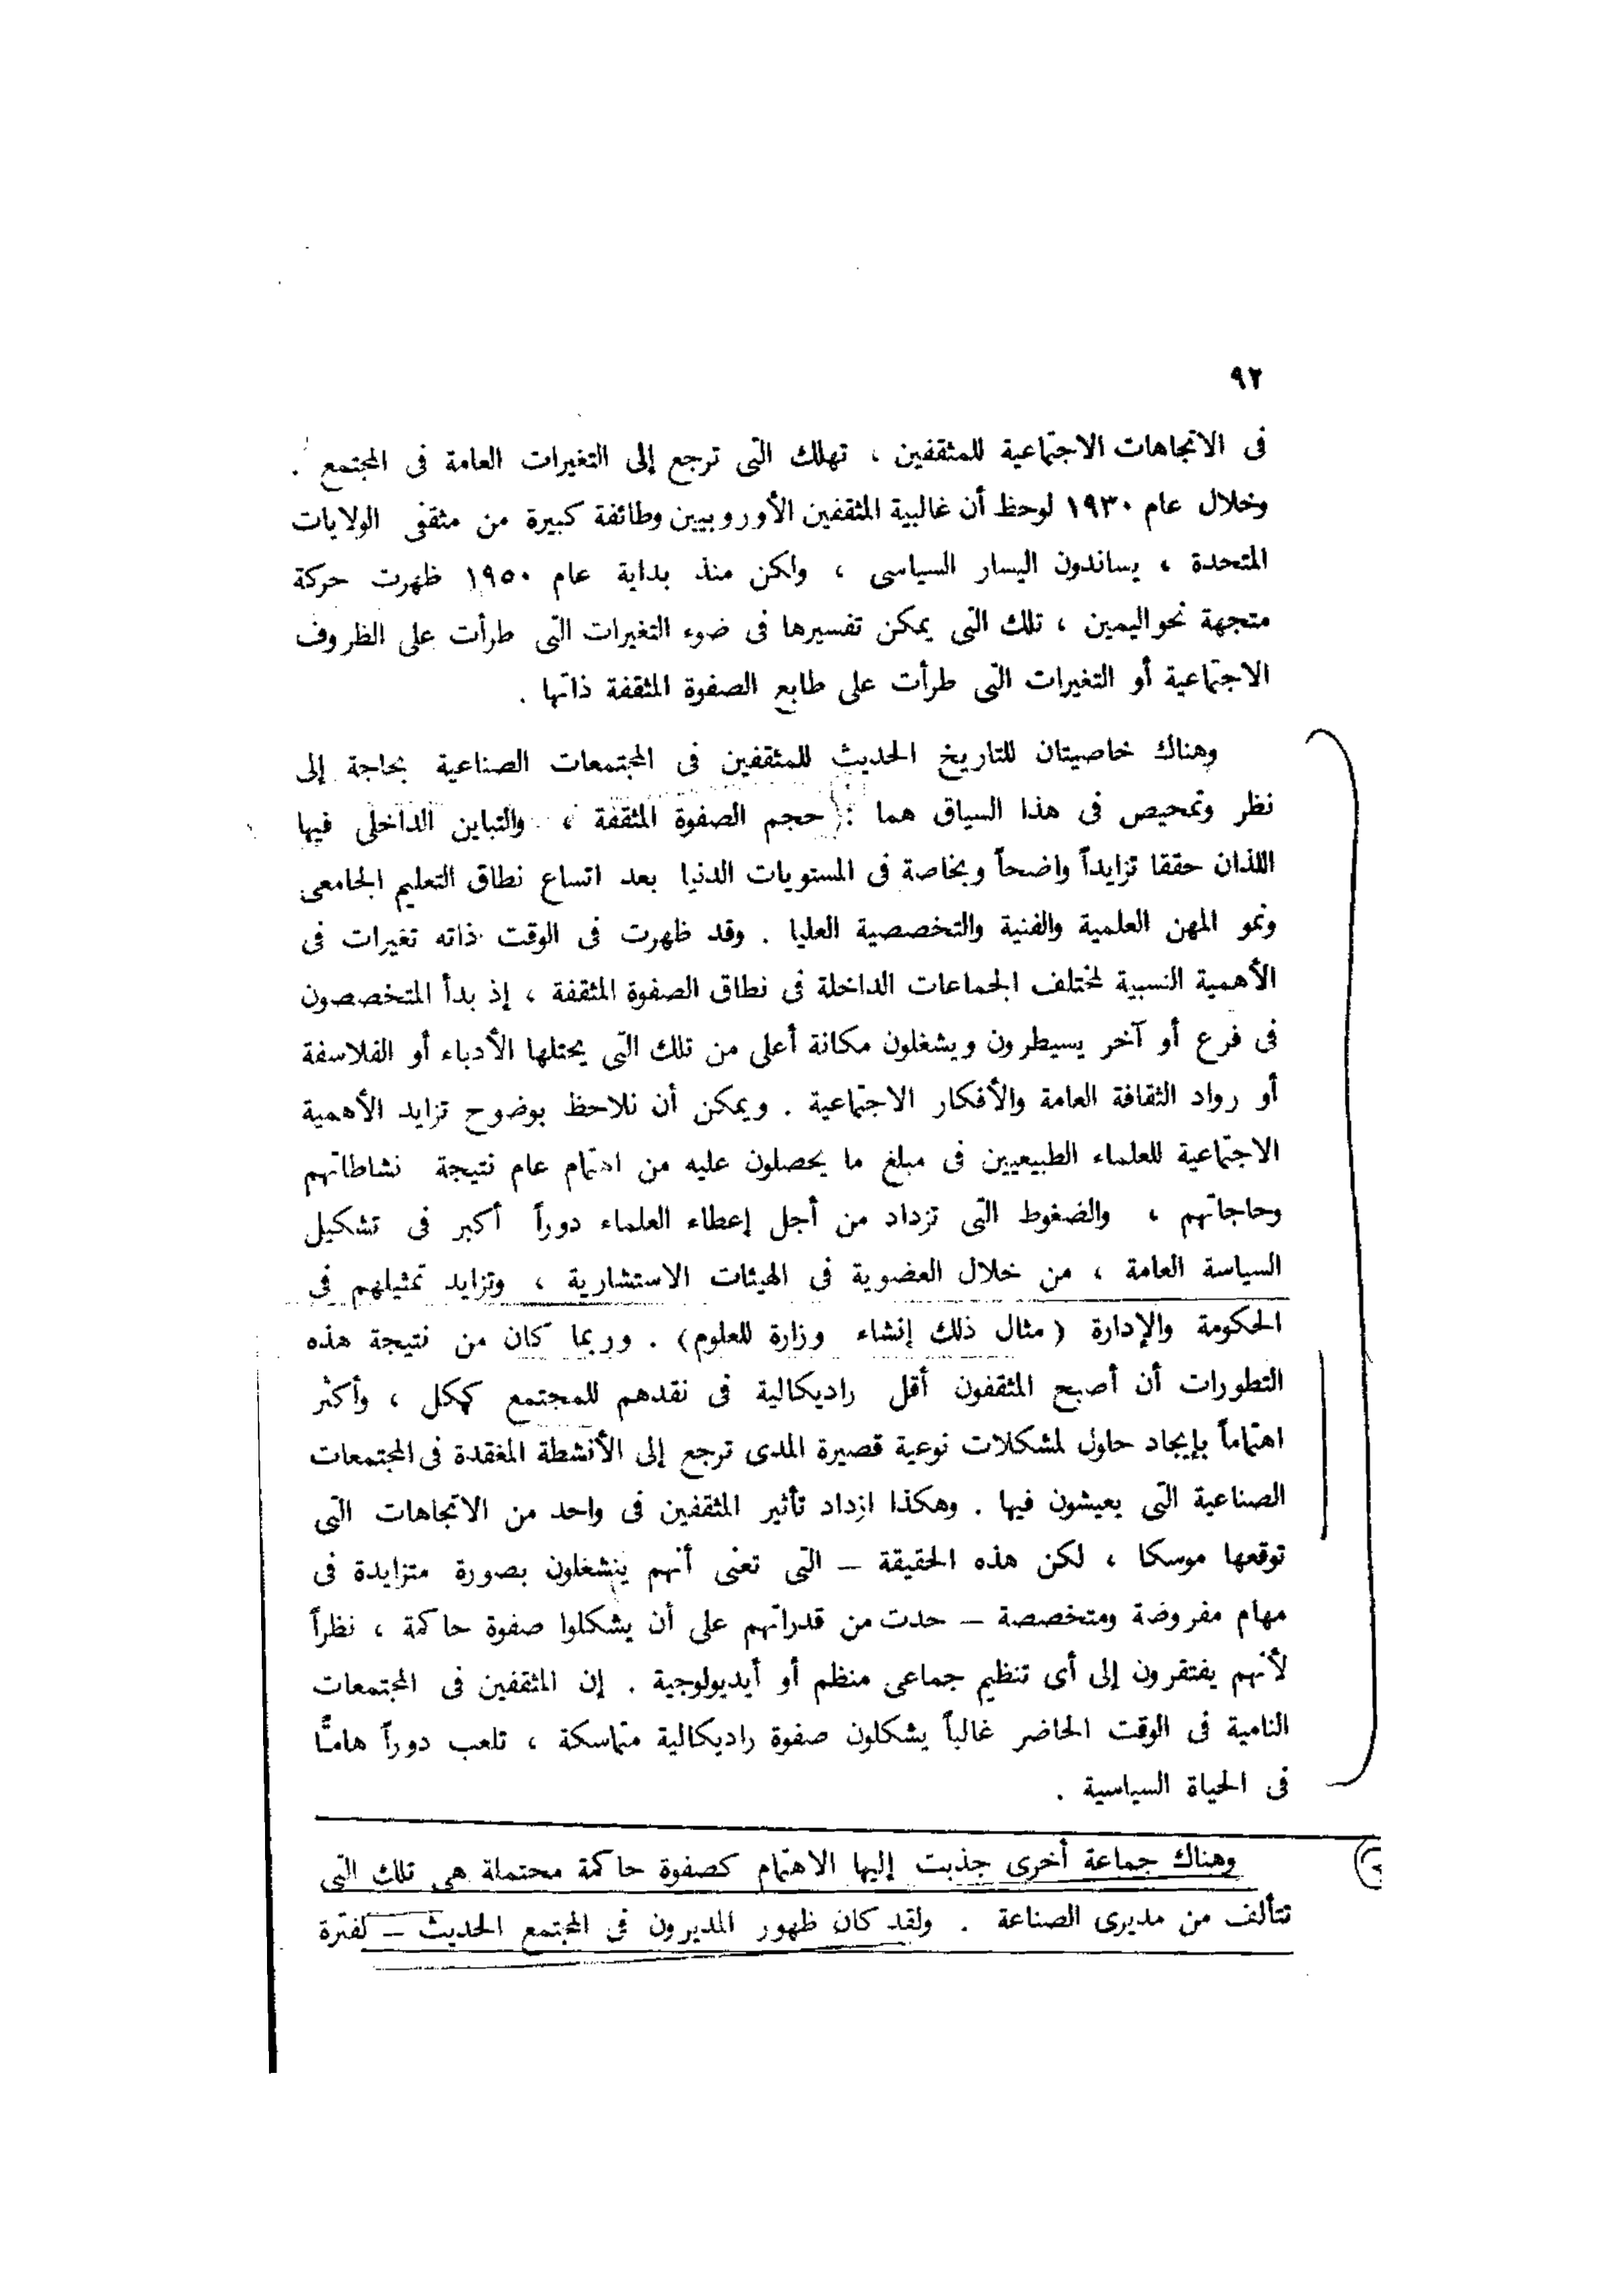 ٩٢
فى الاتجاهات الاجتماعية للمثقفين ، تهلك التى ترجع إلى التغيرات العامة فى المجتمع .
وخلال عام ١٩٣٠ لوحظ أن غالبية المثقفين الأوروبيين وطائفة كبيرة من مثقفى الولايات
المتحدة ، يساندون اليسار السياسى ، ولكن منذ بداية عام ١٩٥٠ ظهرت حركة
متجهة نحو اليمين ، تلك التى يمكن تفسيرها فى ضوء التغيرات التى طرأت على الظروف
الاجتماعية أو التغيرات التى طرأت على طابع الصفوة المثقفة ذاتها .
وهناك خاصيتان للتاريخ الحديث للمثقفين فى المجتمعات الصناعية بحاجة إلى
نظر وتمحيص فى هذا السياق هما : حجم الصفوة المثقفة ، والتباين الداخلى فيها
اللذان حققا تزايداً واضحاً وبخاصة فى المستويات الدنيا بعد اتساع نطاق التعليم الجامعى
ونمو المهن العلمية والفنية والتخصصية العليا . وقد ظهرت فى الوقت ذاته تغيرات فى
الأهمية النسبية لمختلف الجماعات الداخلة فى نطاق الصفوة المثقفة ، إذ بدأ المتخصصون
فى فرع أو آخر يسيطرون ويشغلون مكانة أعلى من تلك التى يحتلها الأدباء أو الفلاسفة
أو رواد الثقافة العامة والأفكار الاجتماعية . ويمكن أن نلاحظ بوضوح تزايد الأهمية
الاجتماعية للعلماء الطبيعيين فى مبلغ ما يحصلون عليه من اهتمام عام نتيجة نشاطاتهم
وحاجاتهم ، والضغوط التى تزداد من أجل إعطاء العلماء دوراً أكبر فى تشكيل
السياسة العامة ، من خلال العضوية فى الهيئات الاستشارية ، وتزايد تمثيلهم فى
الحكومة والإدارة ( مثال ذلك إنشاء وزارة للعلوم) . وربما كان من نتيجة هذه
التطورات أن أصبح المثقفون أقل راديكالية فى نقدهم للمجتمع ككل ، وأكثر
اهتماماً بإيجاد حلول لمشكلات نوعية قصيرة المدى ترجع إلى الأنشطة المغقدة فى المجتمعات
الصناعية التى يعيشون فيها . وهكذا ازداد تأثير المثقفين فى واحد من الاتجاهات التى
توقعها موسكا ، لكن هذه الحقيقة – التى تعنى أنهم ينشغلون بصورة متزايدة فى
مهام مفروضة ومتخصصة – حدت من قدراتهم على أن يشكلوا صفوة حاكمة ، نظراً
لأنهم يفتقرون إلى أى تنظيم جماعى منظم أو أيديولوجية . إن المثقفين فى المجتمعات
النامية فى الوقت الحاضر غالباً يشكلون صفوة راديكالية متماسكة ، تلعب دوراً هامًّا
فى الحياة السياسية .
وهناك جماعة أخرى جذبت إليها الاهتمام كصفوة حاكمة محتملة هى تلك التى
تتألف من مديرى الصناعة . ولقد كان ظهور المديرون فى المجتمع الحديث – لفترة